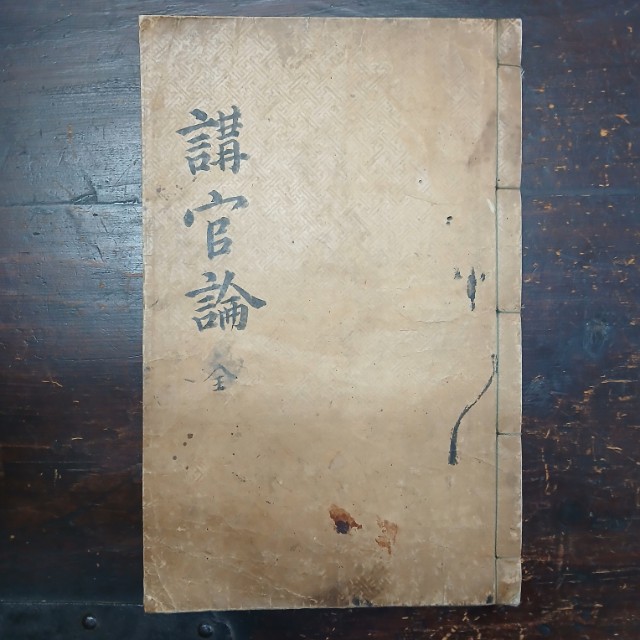 講官論全